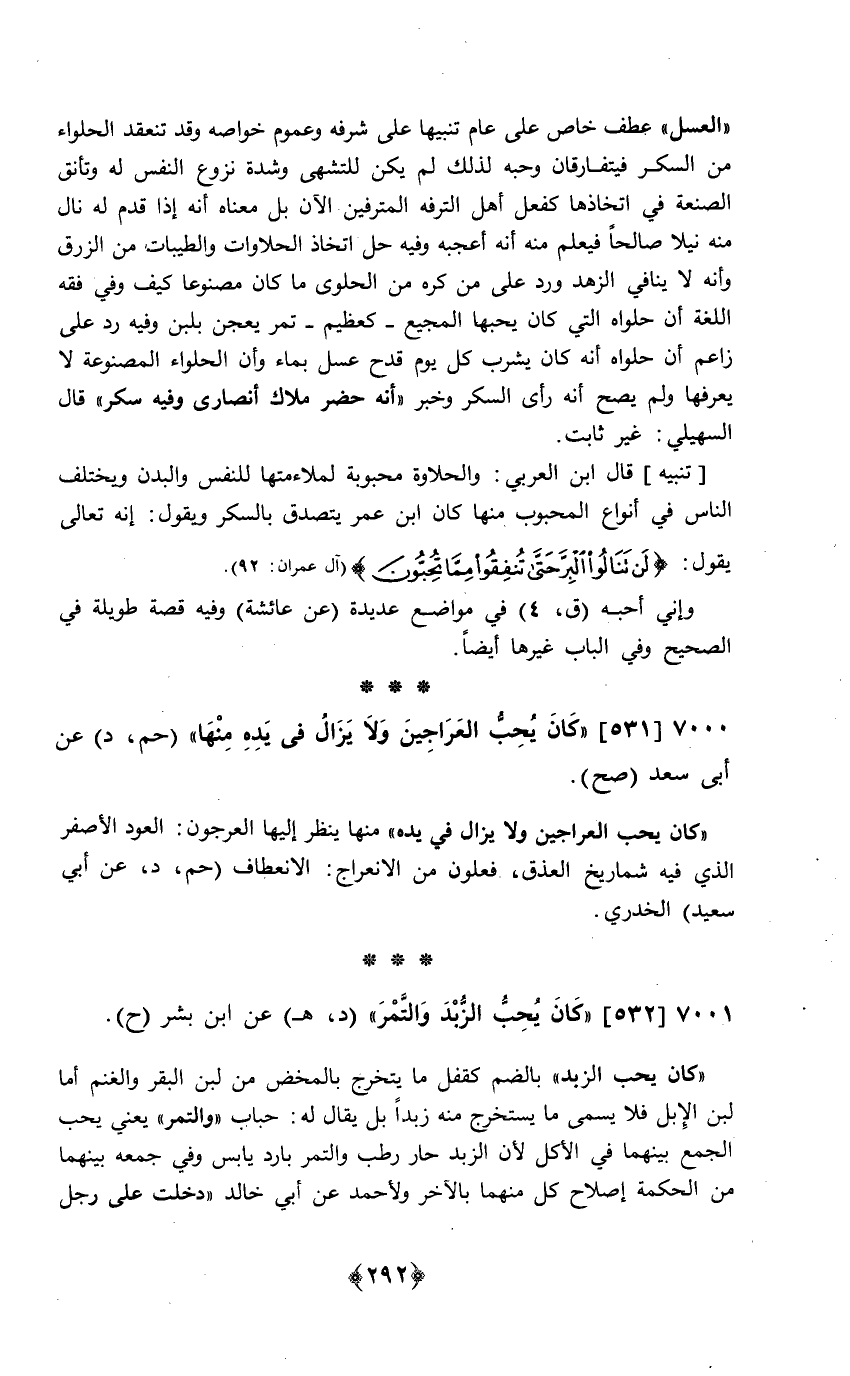 «العسل» عطف خاص على عام تنبيها على شرفه وعموم خواصه وقد تنعقد الحلواء
من السكر فيتفارقان وحبه لذلك لم يكن للتشهى وشدة نزوع النفس له وتأنق
الصنعة في اتخاذها كفعل أهل الترفه المترفين الآن بل معناه أنه إذا قدم له نال
منه نيلا صالحاً فيعلم منه أنه أعجبه وفيه حل اتخاذ الحلاوات والطيبات من الزرق
وأنه لا ينافي الزهد ورد على من كره من الحلوى ما كان مصنوعا كيف وفي فقه
اللغة أن حلواه التي كان يحبها المجيع ـ كعظيم ـ تمر يعجن بلبن وفيه رد على
زاعم أن حلواه أنه كان يشرب كل يوم قدح عسل بماء وأن الحلواء المصنوعة لا
يعرفها ولم يصح أنه رأى السكر وخبر «أنه حضر ملاك أنصارى وفيه سكر» قال
السهيلي: غير ثابت.
[تنبيه] قال ابن العربي: والحلاوة محبوبة لملاءمتها للنفس والبدن ويختلف
الناس في أنواع المحبوب منها كان ابن عمر يتصدق بالسكر ويقول: إنه تعالى
يقول: ﴿لَن تَنَالُوا۟ ٱلْبِرَّ حَتَّىٰ تُنفِقُوا۟ مِمَّا تُحِبُّونَ﴾ (آل عمران: ٩٢).
وإني أحبه (ق، ٤) في مواضع عديدة (عن عائشة) وفيه قصة طويلة في
الصحيح وفي الباب غيرها أيضاً.
* * *
٧٠٠٠ [٥٣١] «كَانَ يُحِبُّ العَرَاجِينَ وَلاَ يَزَالُ فى يَدِهِ مِنْهَا» (حم، د) عن
أبى سعد (صح).
«كان يحب العراجين ولا يزال في يده» منها ينظر إليها العرجون: العود الأصفر
الذي فيه شماريخ العذق، فعلون من الانعراج: الانعطاف (حم، د، عن أبي
سعيد) الخدري.
* * *
٧٠٠١ [٥٣٢] «كَانَ يُحِبُّ الزُّبْدَ وَالتَّمْرَ» (د، هـ) عن ابن بشر (ح).
«كان يحب الزبد» بالضم كقفل ما يتخرج بالمخض من لبن البقر والغنم أما
لبن الإبل فلا يسمى ما يستخرج منه زبداً بل يقال له: حباب «والتمر» يعني يحب
الجمع بينهما في الأكل لأن الزبد حار رطب والتمر بارد يابس وفي جمعه بينهما
من الحكمة إصلاح كل منهما بالآخر ولأحمد عن أبي خالد «دخلت على رجل
﴿٢٩٢﴾